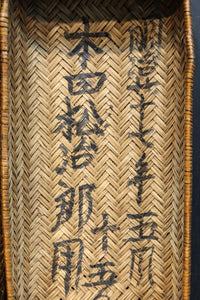 明治廿七年五月
十五
本田松治郎用